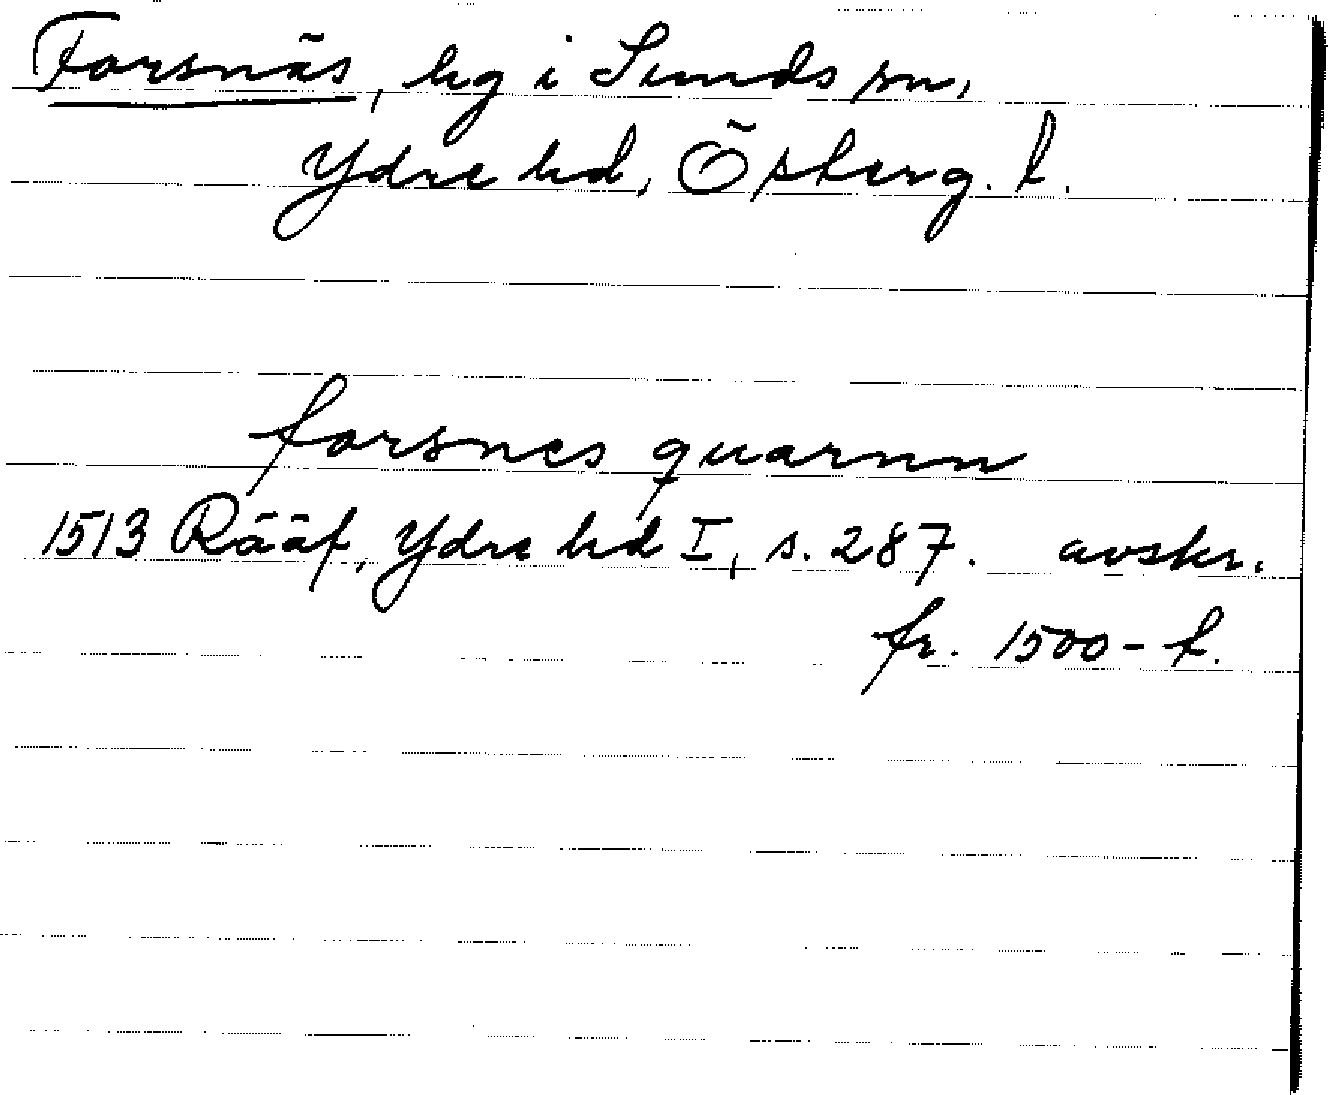 Forsnäs, hg i Sunds sn,
Ydre hd, Österg. l.
forsnes quarnn
1513 Rääf, Ydre hd I, s. 287. avskr.
fr. 1500-t.